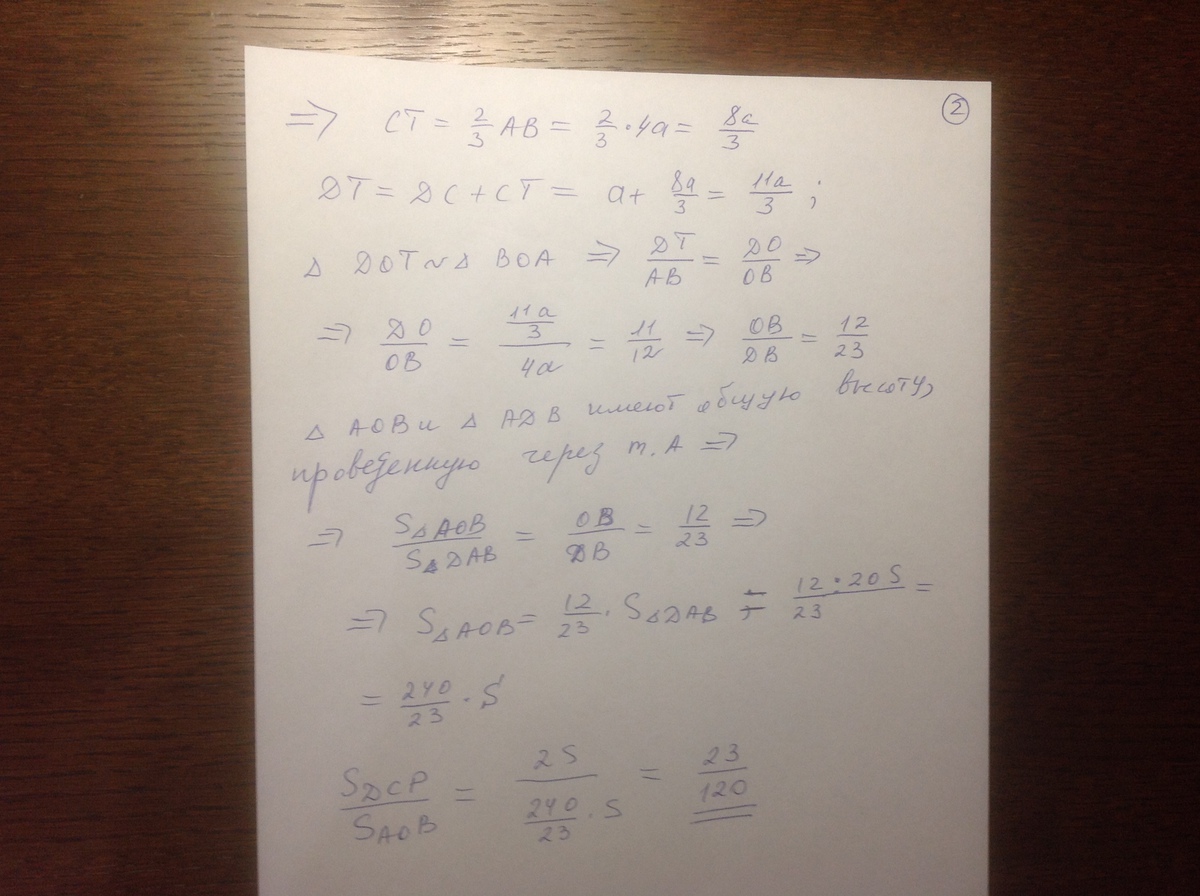 ②
=> CT = 2/3 AB = 2/3 · 4a = 8a/3
DT = DC + CT = a + 8a/3 = 11a/3 ;
Δ DOT ~ Δ BOA => DT/AB = DO/OB =>
=> DO/OB = (11a/3)/(4a) = 11/12 => OB/DB = 12/23
Δ AOB и Δ ADB имеют общую высоту,
проведенную через т. A =>
=> SΔAOB/SΔDAB = OB/DB = 12/23 =>
=> SΔAOB = 12/23 · SΔDAB = (12 · 20S)/23 =
= 240/23 · S
SDCP/SAOB = 2S/(240/23 · S) = 23/120